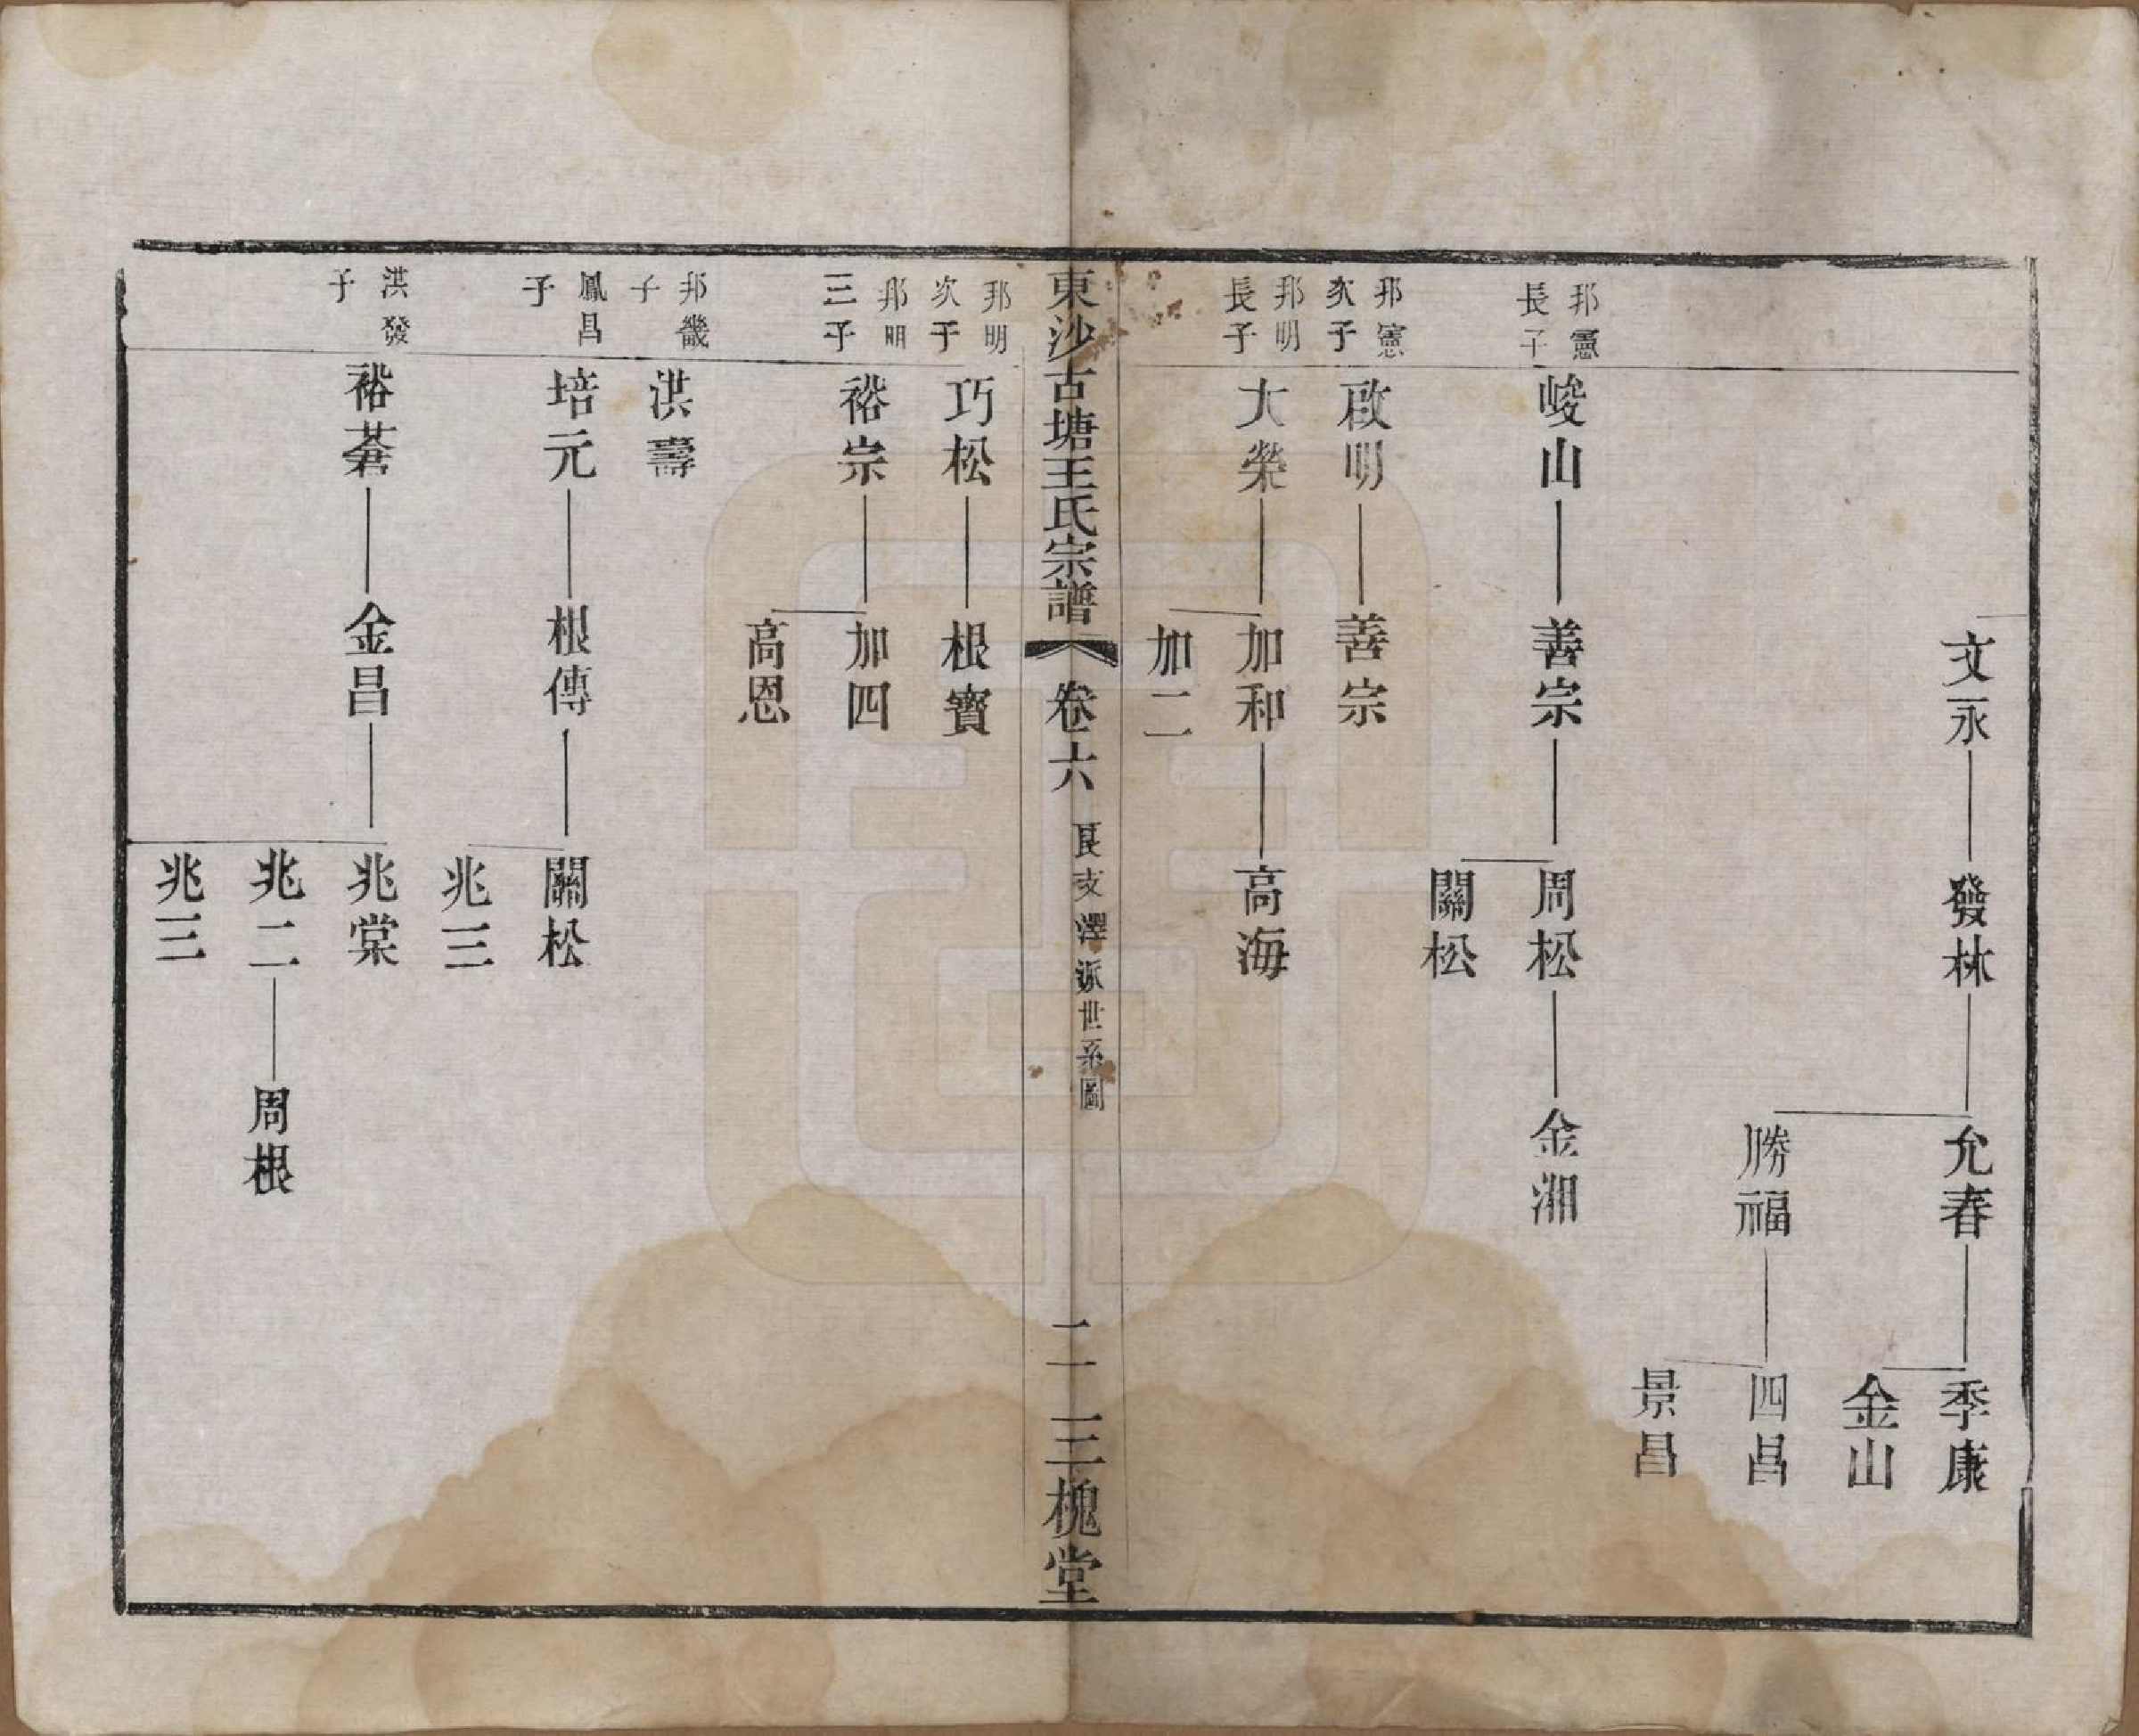 文永 發林 允春 季康
金山
勝福 四昌
景昌
邦憲長子 峻山 善宗 周松 金湘
關松
邦憲次子 啟明 善宗
邦明長子 大榮 加和 高海
加二
東沙古塘王氏宗譜 卷六 艮支澤派世系圖 二 三槐堂
邦明次子 巧松 根寶
邦明三子 裕宗 加四
高恩
邦畿子 洪壽
鳳昌子 培元 根傳 關松
兆三
洪發子 裕荅 金昌 兆棠
兆二 周根
兆三